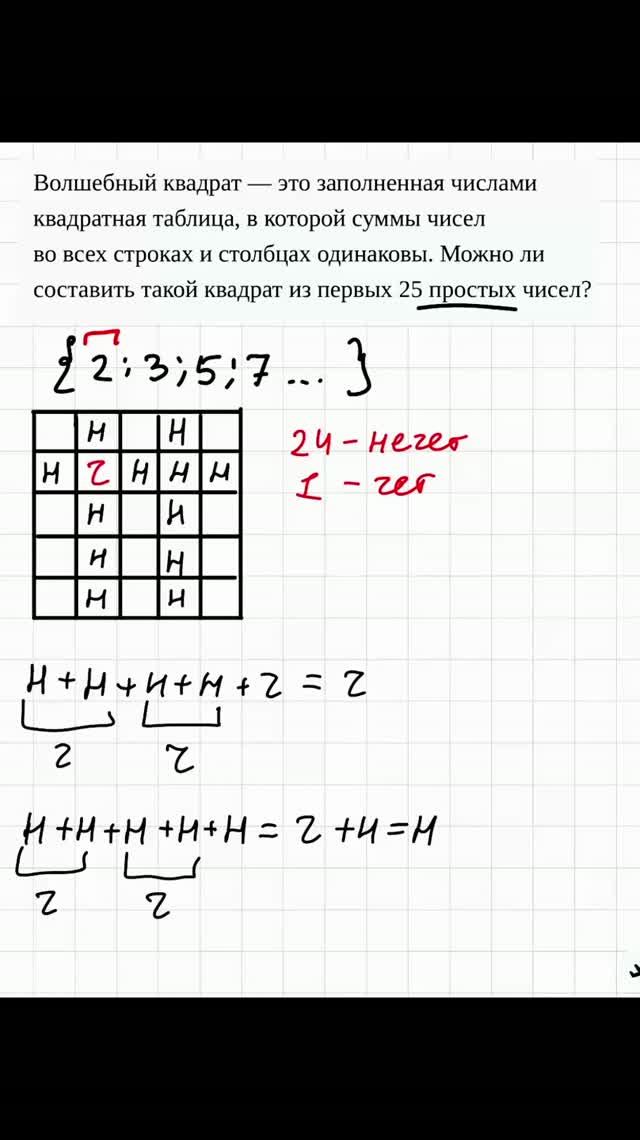 Волшебный квадрат — это заполненная числами
квадратная таблица, в которой суммы чисел
во всех строках и столбцах одинаковы. Можно ли
составить такой квадрат из первых 25 простых чисел?
{2;3;5;7...}
Н Н
Н Ч Н Н Н
Н Н
Н Н
Н Н
24 - нечет
1 - чет
Н + Н + Н + Н + Ч = Ч
Ч Ч
Н + Н + Н + Н + Н = Ч + Н = Н
Ч Ч